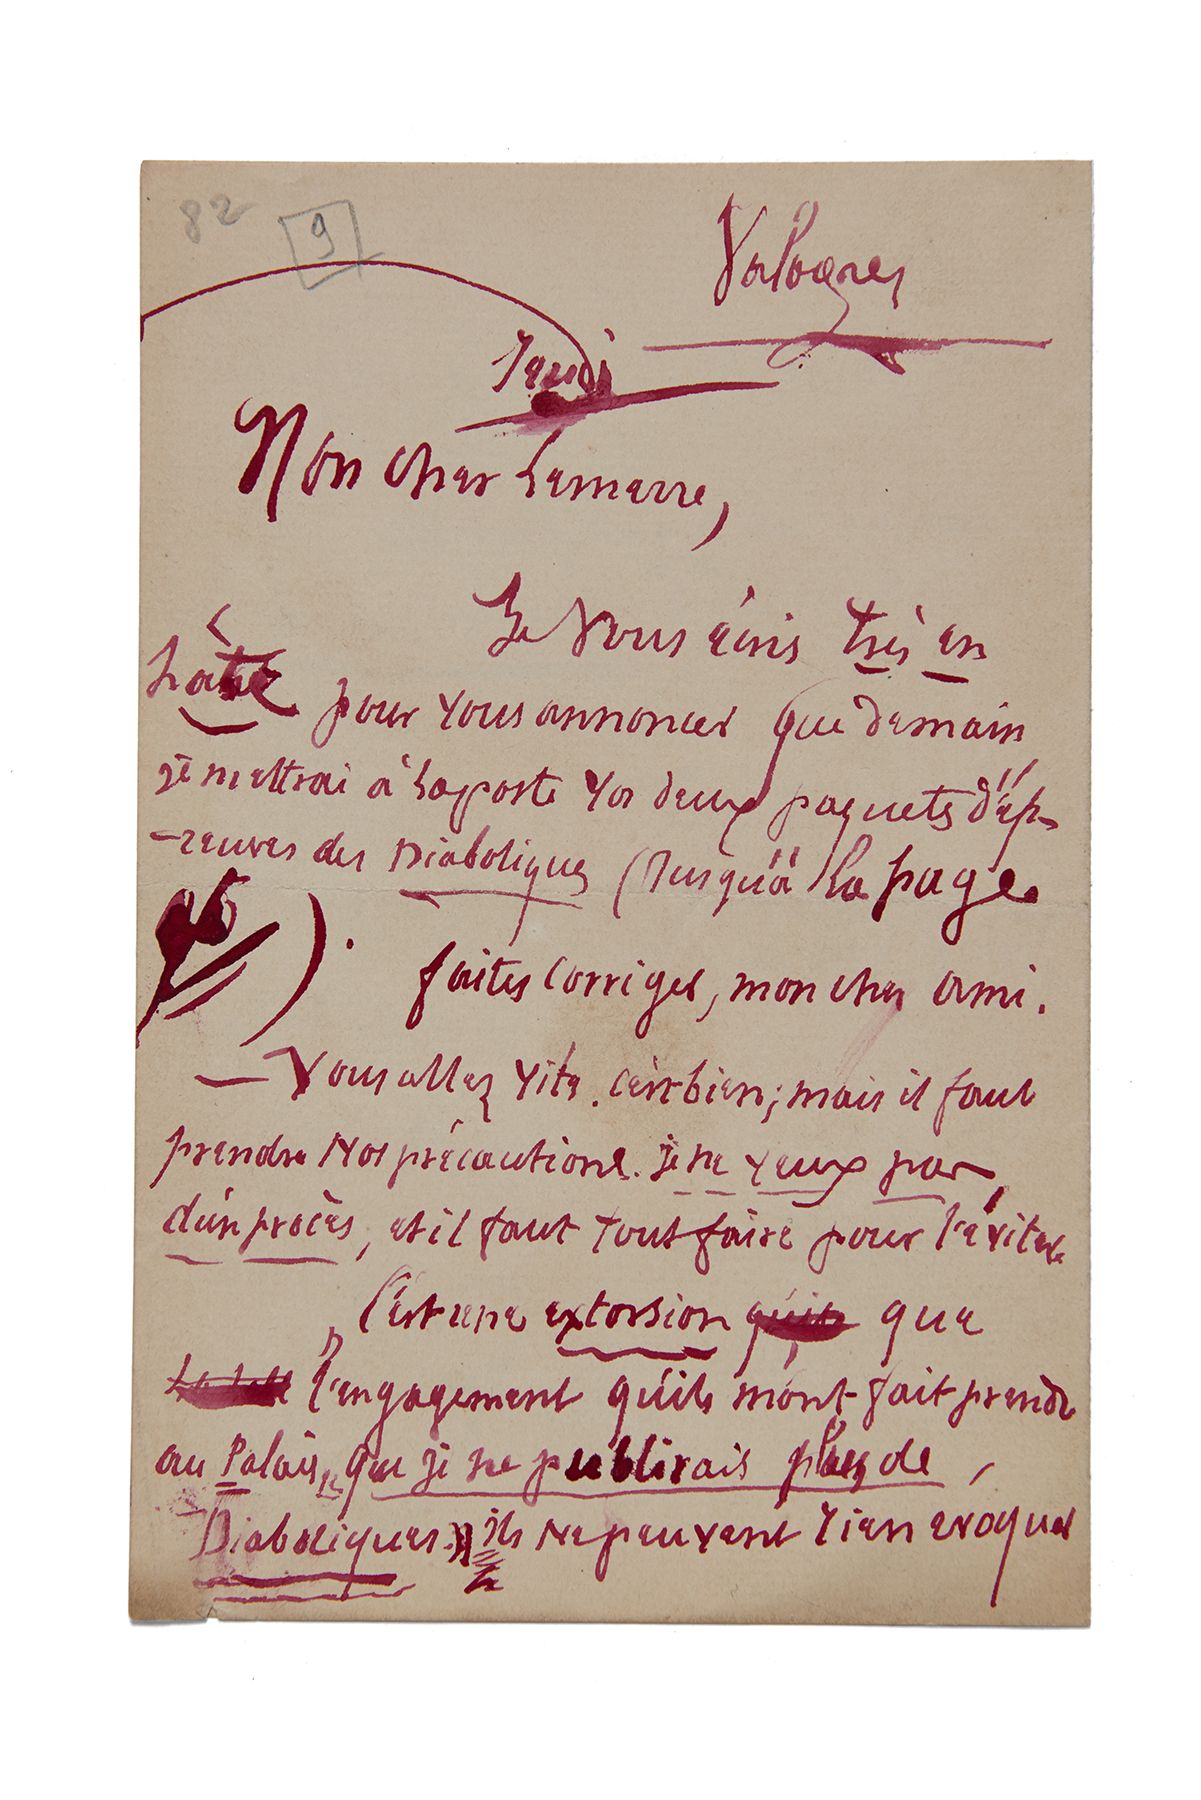 82 9
Valognes
Jeudi
Mon cher Lemerre,
Je vous écris très en
hâte pour vous annoncer que demain
je mettrai à la poste vos deux paquets d'ép-
-reuves des Diaboliques (Jusqu'à la page
96).
faites corriger, mon cher ami.
— Vous allez vite. C'est bien; mais il faut
prendre nos précautions. je ne veux pas
d'un procès, et il faut tout faire pour l'éviter
C'est une extorsion que
l'engagement qu'ils m'ont fait prendre
au Palais, « que je ne publirais plus de
Diaboliques. » ils ne peuvent rien évoquer